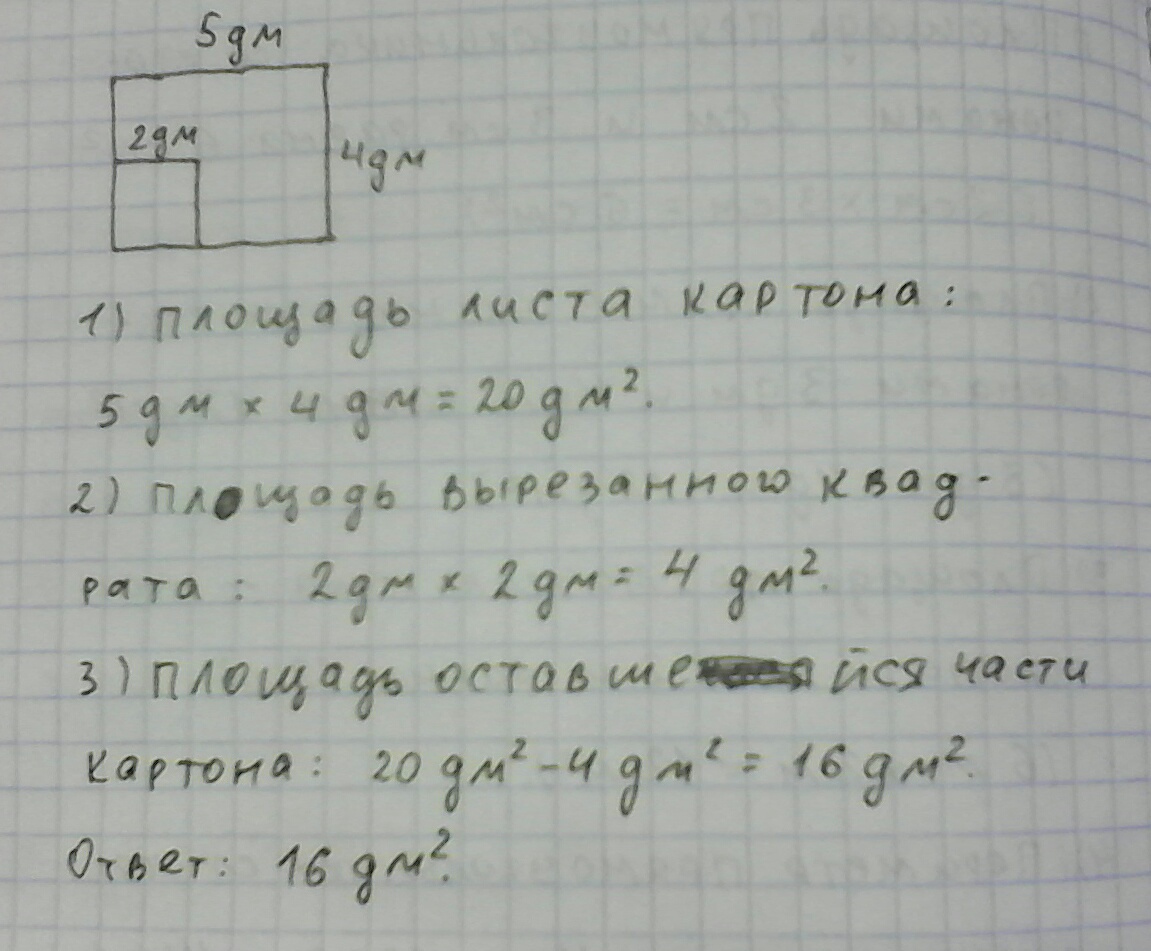 5 дм
2 дм
4 дм
1) площадь листа картона:
5 дм × 4 дм = 20 дм².
2) площадь вырезанного квад-
рата: 2 дм × 2 дм = 4 дм².
3) площадь оставшейся части
картона: 20 дм² - 4 дм² = 16 дм².
Ответ: 16 дм².